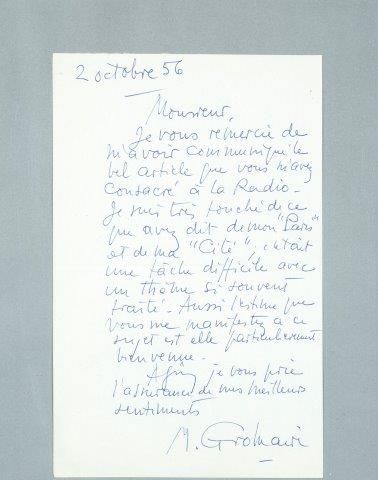 2 octobre 56
Monsieur,
Je vous remercie de
m'avoir communiqué le
bel article que vous m'avez
consacré à la Radio -
Je suis très touché de ce
que avez dit de mon "Paris"
et de ma "Cité", c'était
une tâche difficile avec
un thème si souvent
traité - Aussi l'estime que
vous me manifestez à ce
sujet est elle particulièrement
bienvenue -
Agréez je vous prie
l'assurance de mes meilleurs
sentiments
M. Gromaire